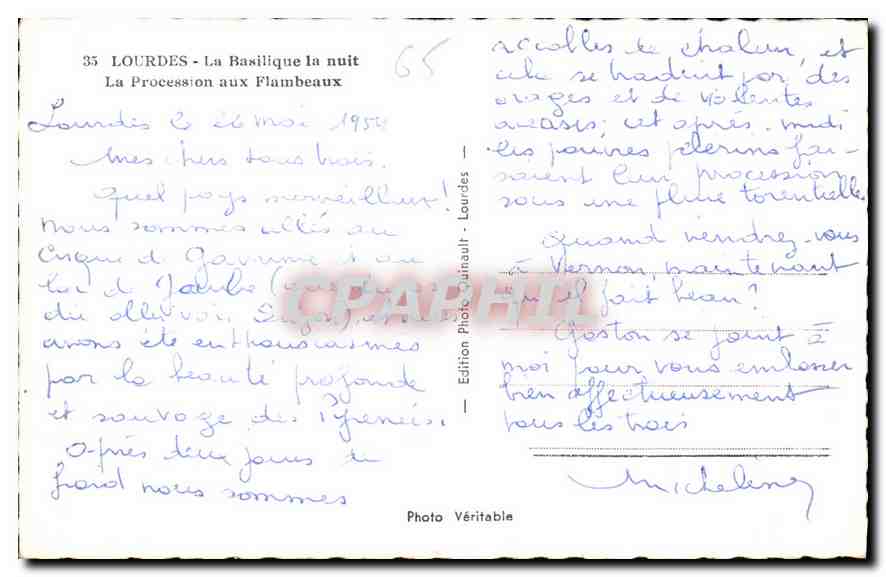 35 LOURDES - La Basilique la nuit
La Procession aux Flambeaux
65
Lourdes le 26 mai 1954
Mes chers tous trois.
Quel pays merveilleux!
nous sommes allés au
Cirque de Gavarnie et au
lac de
dû aller voir
avons été enthousiasmés
par la beauté profonde
et sauvage des Pyrénées.
Après deux jours de
froid nous sommes
accablés de chaleur, et
cela se traduit par des
orages et de violentes
averses; cet après-midi
les pauvres pèlerins fai-
saient leur procession
sous une pluie torentielle.
Quand viendrez-vous
à Vernon, maintenant
qu'il fait beau?
Gaston se joint à
moi pour vous embrasser
bien affectueusement
tous les trois
Micheline
Edition Photo Quinault - Lourdes
Photo Véritable
CPAPHIL